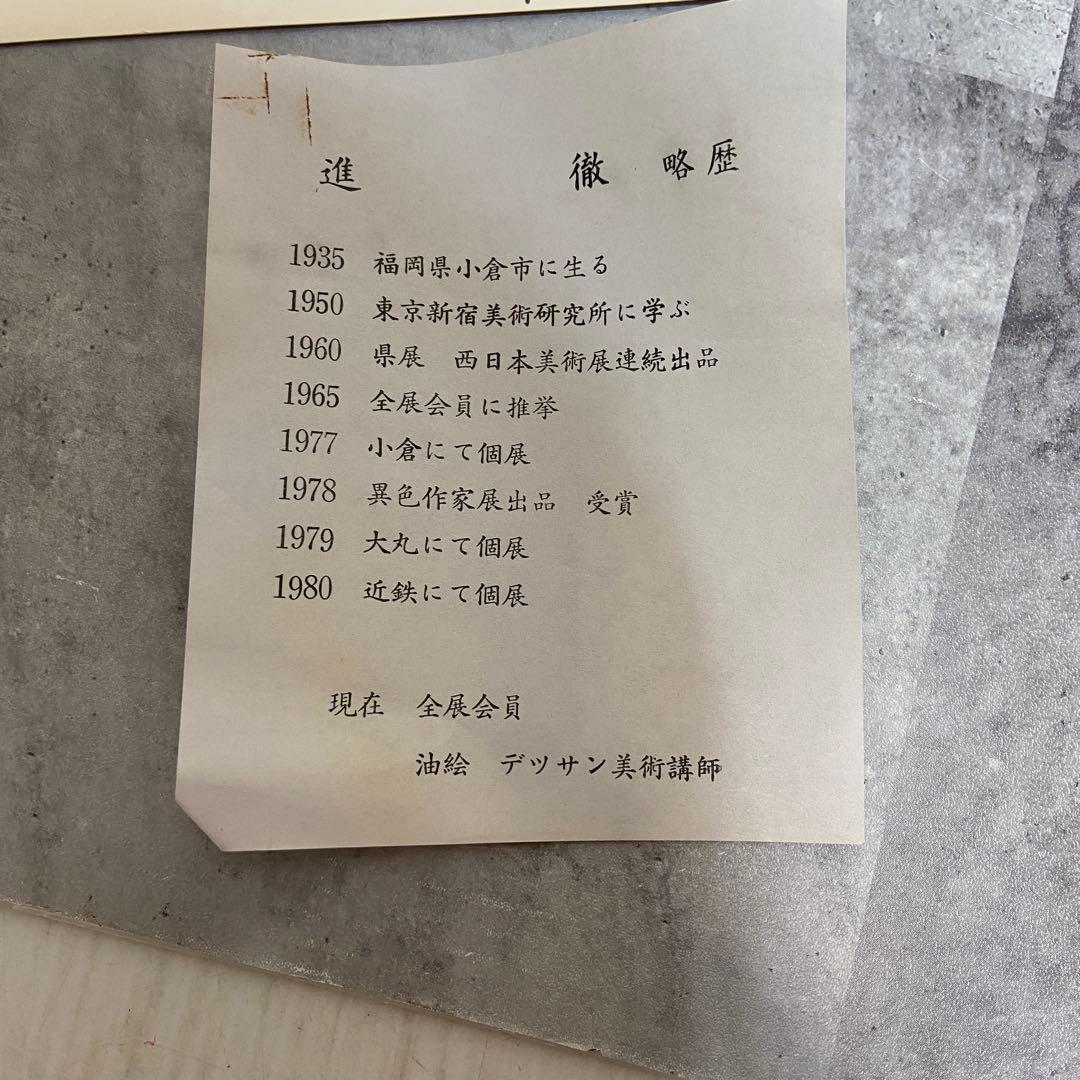 進 徹 略歴
1935 福岡県小倉市に生る
1950 東京新宿美術研究所に学ぶ
1960 県展 西日本美術展連続出品
1965 全展会員に推挙
1977 小倉にて個展
1978 異色作家展出品 受賞
1979 大丸にて個展
1980 近鉄にて個展
現在 全展会員
油絵 デツサン美術講師